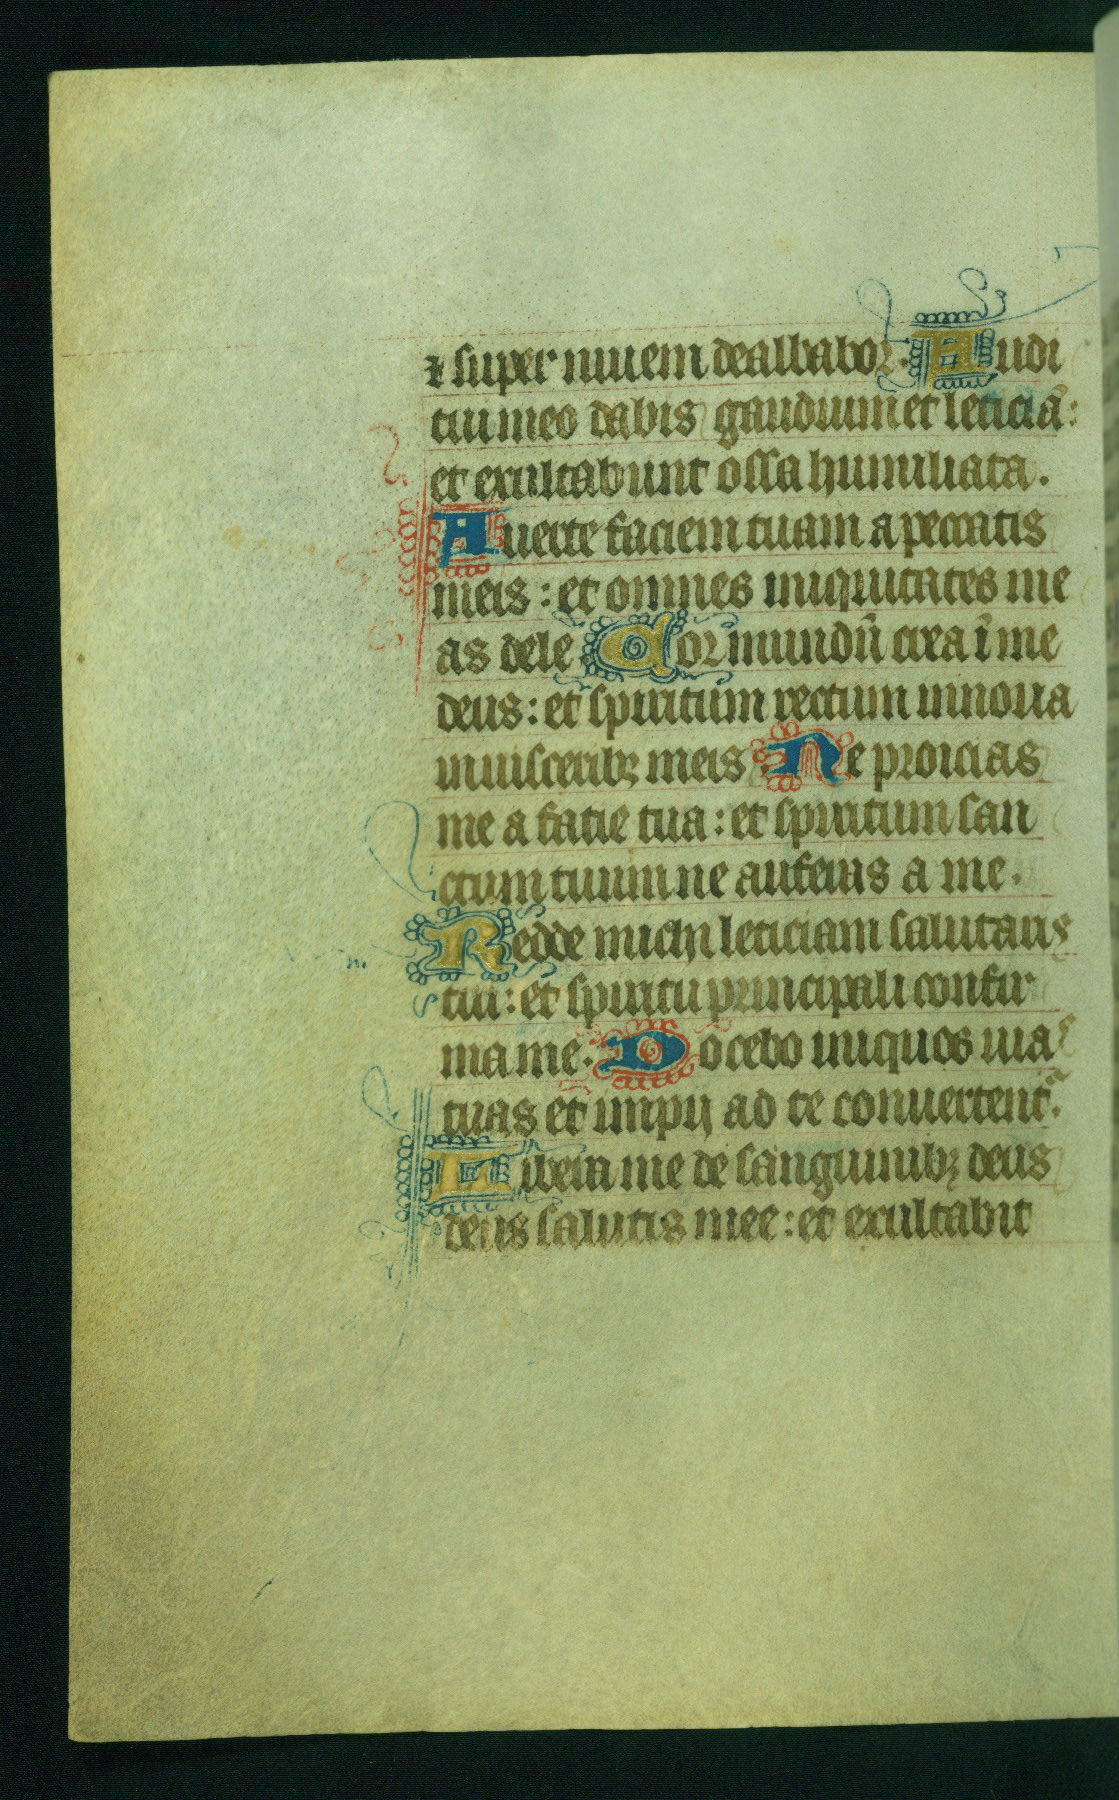 ⁊ super niuem dealbabor. Audi
tui meo dabis gaudium et leticiā:
et exultabunt ossa humiliata.
Auerte faciem tuam a peccatis
meis: et omnes iniquitates me
as dele. Cor mundū crea ī me
deus: et spiritum rectum innoua
inuiscerib; meis. Ne proicias
me a facie tua: et spiritum san
ctum tuum ne auferas a me.
Redde michi leticiam salutaris
tui: et spiritu principali confir
ma me. Docebo iniquos uias
tuas et impij ad te conuertent᷑.
Libera me de sanguinib; deus
deus salutis mee: et exultabit